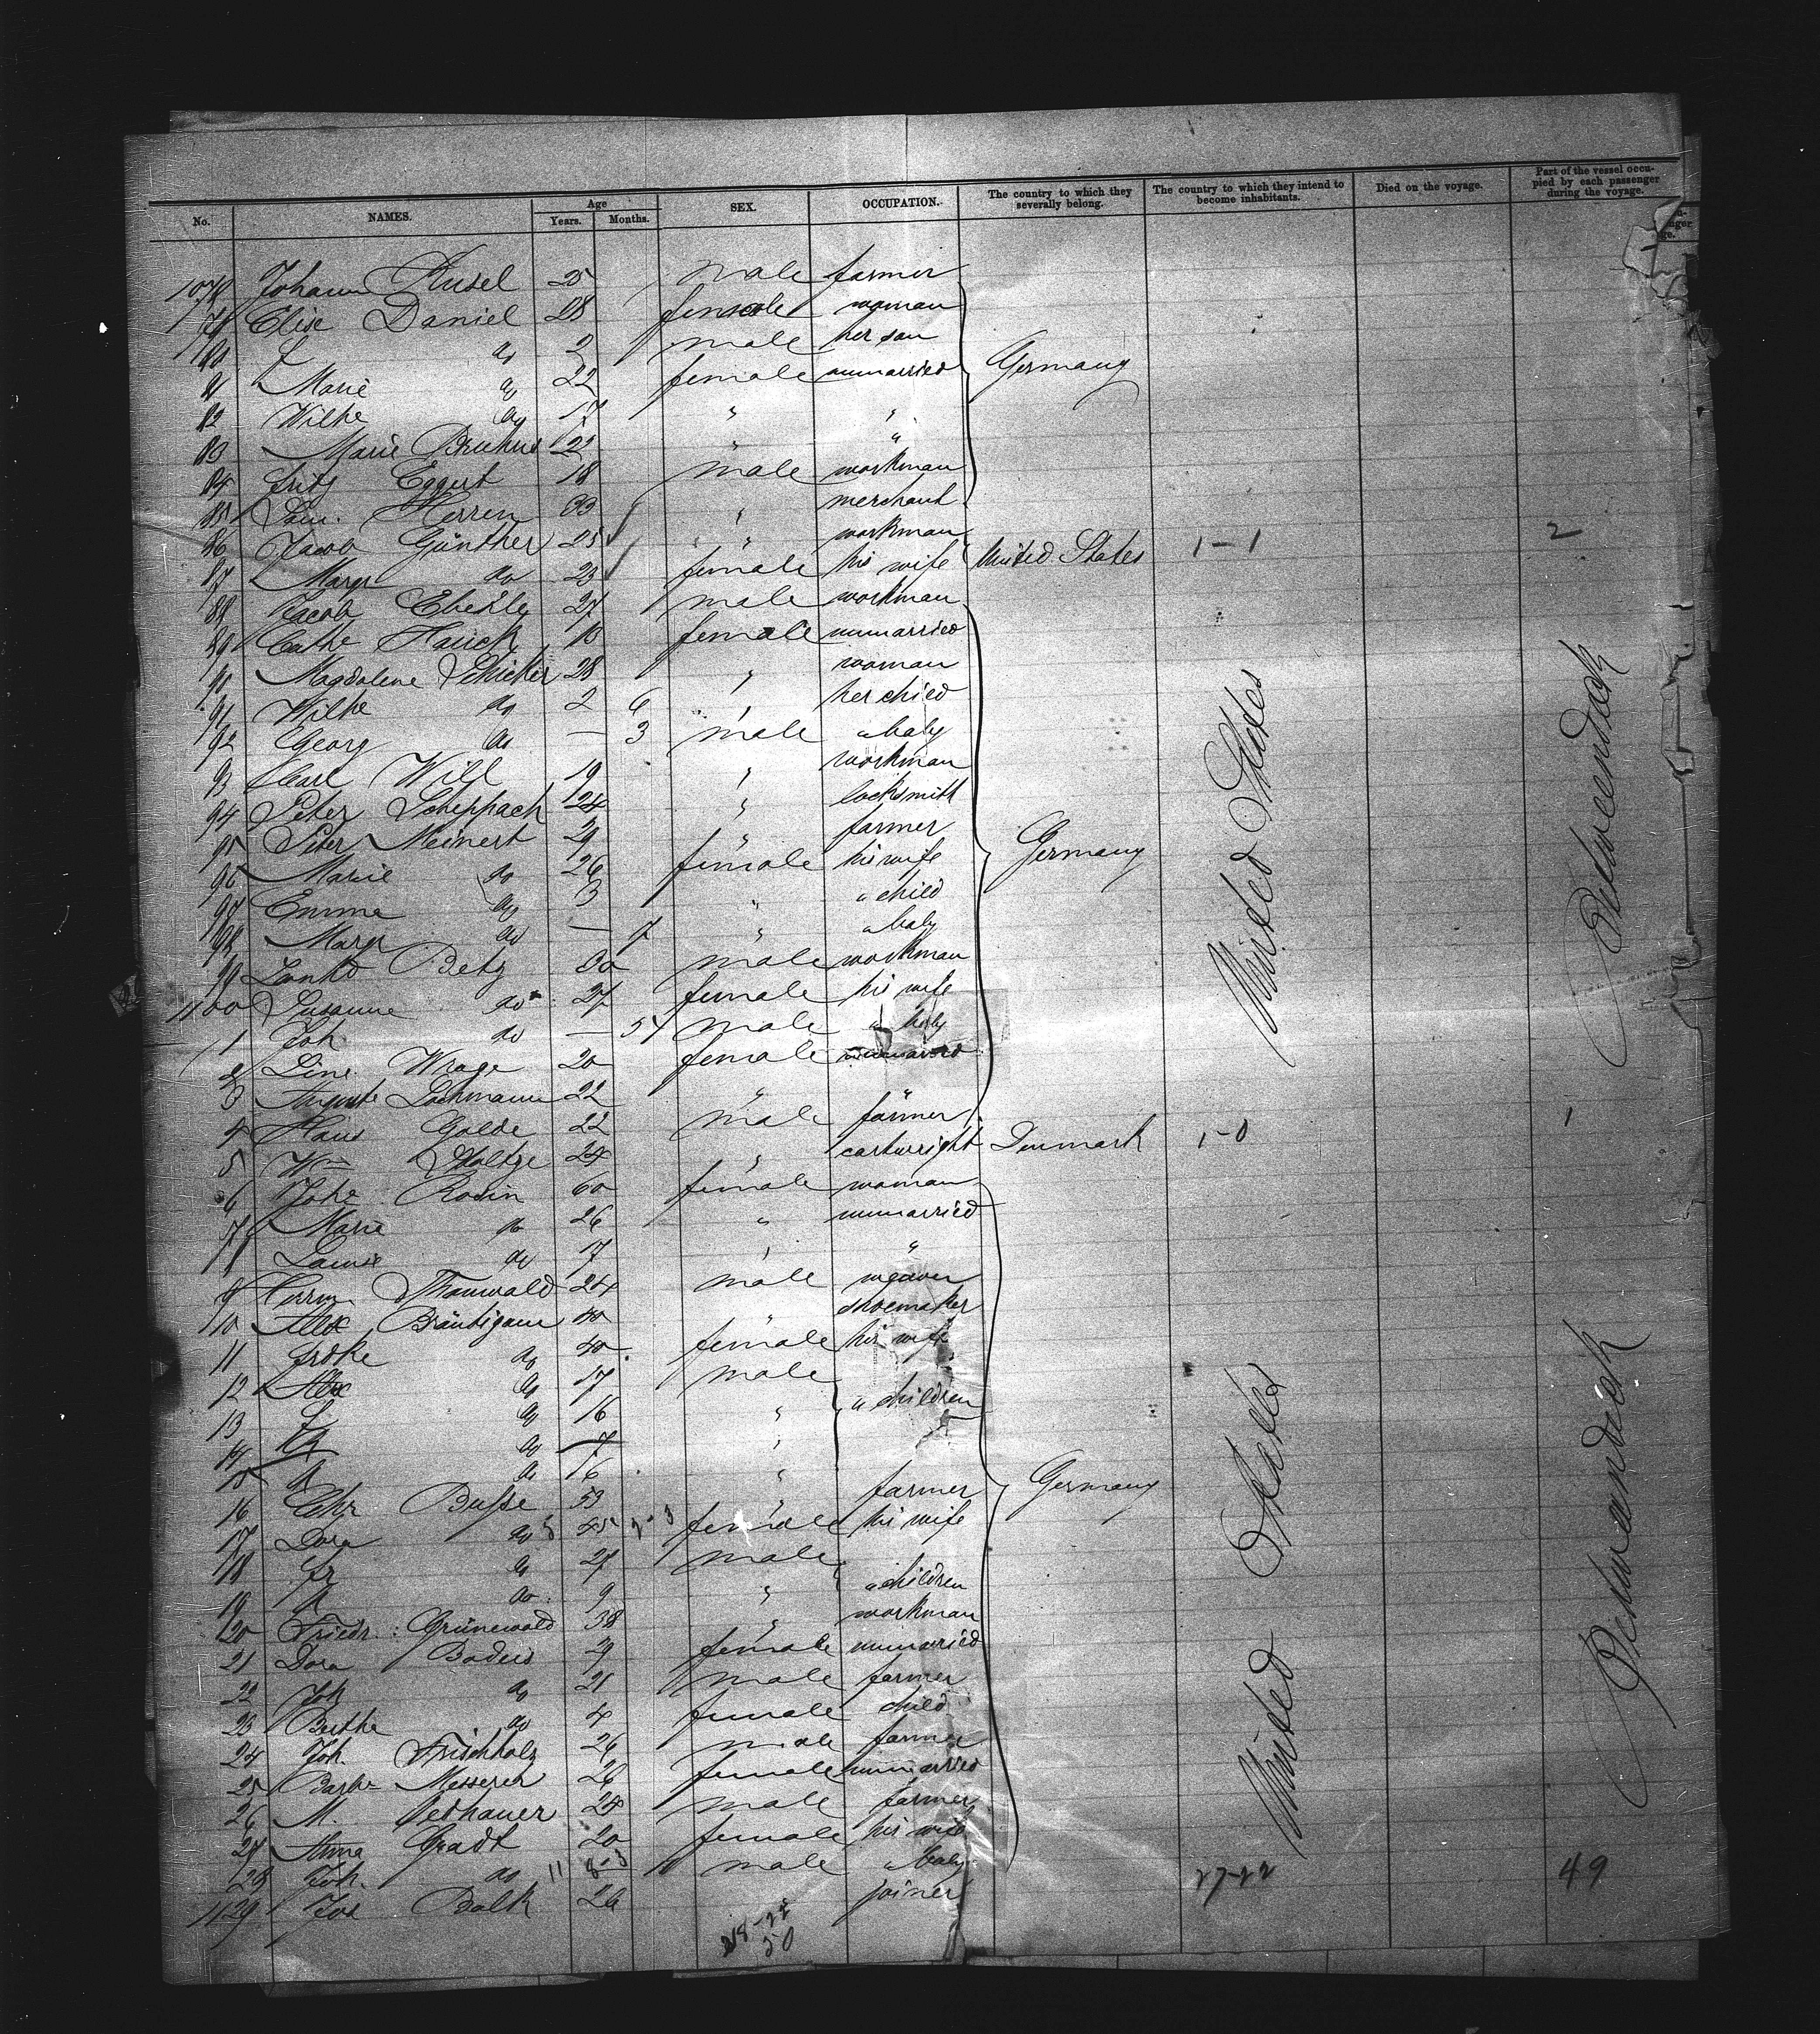 No. NAMES. Age Years. Months. SEX. OCCUPATION. The country to which they severally belong. The country to which they intend to become inhabitants. Died on the voyage. Part of the vessel occupied by each passenger during the voyage.
Johann 25 male farmer
Elise Daniel 28 female woman
80 do 2 male her son
81 Marie do 22 female unmarried Germany
82 Wilhe do 17 " "
83 Marie Bruhns 22 " "
84 Fritz Eggert 18 male workman
85 Herren 33 " merchant
86 Jacob Günther 25 " workman
87 Margr do 23 female his wife United States 1-1 2
88 Jacob Eberle 27 male workman
89 Cathe Hauck 18 female unmarried
90 Magdalene 28 " woman
91 Wilhe do 2 6 " her child
92 Georg do — 3 male " baby
93 Carl Will 19 " workman
94 Peter Scheppach 24 " locksmith
95 Peter Meinert 29 " farmer
96 Marie do 26 female his wife Germany
97 Emma do 3 " " child
98 Margr do — 7 " " baby
99 Betz 30 male workman
1100 Susanne do 27 female his wife
1 Joh do — male " baby
2 Line Wrage 20 female unmarried
3 Auguste Lochmann 22 " "
4 Hans Golde 22 male farmer
5 Wm 24 " cartwright Denmark 1-0 1
6 Johe Rosin 60 female woman
7 Marie do 26 " unmarried
8 Louise do 17 " "
9 Herrm Thonwald 24 male weaver
10 Alex Bräutigam 40 " shoemaker
11 Frdke do 40 female his wife
12 Alex do 17 male
13 do 16 " " children
14 do 7 "
15 do 6 "
16 Chr Busse 53 " farmer Germany
17 Dora do 45 female his wife
18 Fr do 27 male
19 do 9 " " children
20 Friedr. Grünewald 38 " workman
21 Dora 29 female unmarried
22 Joh do 21 male farmer
23 Berthe do 4 female child
24 Joh. Frischholz 26 male farmer
25 Barb. Messerer 26 female unmarried
26 M. 24 male farmer
27 Anna Gradt 20 female his wife
28 Joh. do 11 male " baby 27-22 49
1129 Jos Balk 26 joiner
50
United States
Betweendeck
United States
Betweendeck